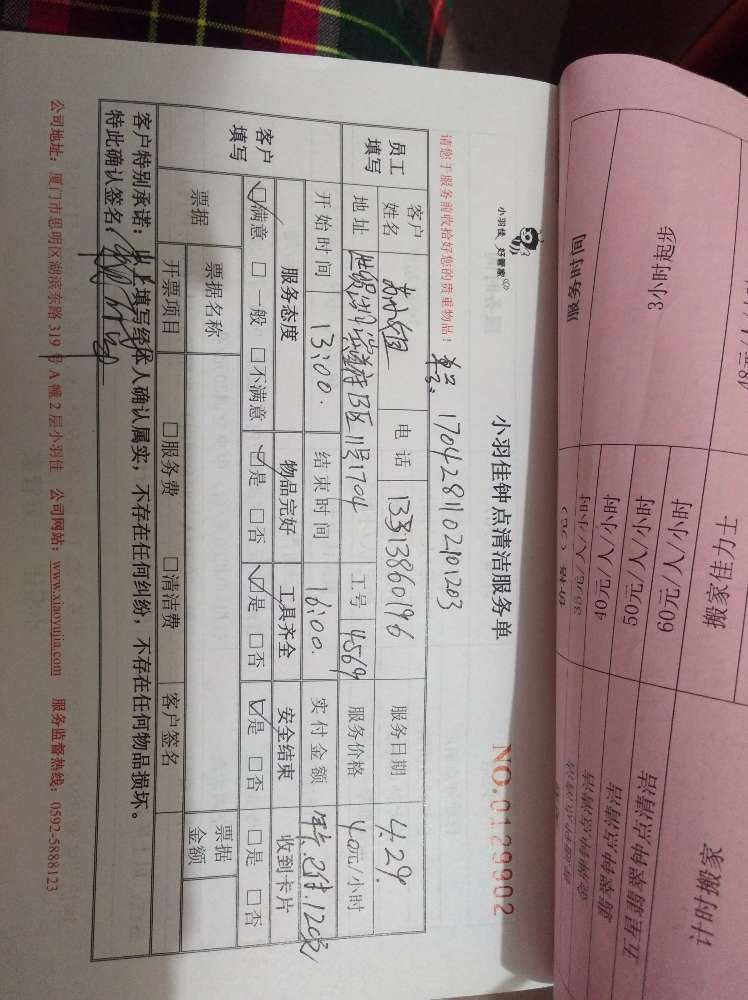 小羽佳 好管家
小羽佳钟点清洁服务单
NO.0129902
请您于服务前收拾好您的贵重物品！
单号: 170428110210203
员工填写 客户姓名 苏小姐 电话 服务日期 4.29.
地址 B区11号1704 工号 4569 服务价格 40元/小时
开始时间 13:00. 结束时间 16:00. 实付金额 已付.120元
客户填写 服务态度 物品完好 工具齐全 安全结束 收到卡片
☑满意 □一般 □不满意 ☑是 □否 ☑是 □否 ☑是 □否 □是 □否
票据 票据名称 票据金额
开票项目 □服务费 □清洁费 客户签名
客户特别承诺：以上填写经本人确认属实，不存在任何纠纷，不存在任何物品损坏。
特此确认签名：
公司地址：厦门市思明区湖滨东路319号A幢2层小羽佳 公司网站：www.xiaoyujia.com 服务监督热线：0592-5888123
服务时间
3小时起步
搬家佳力士
60元/人/小时
50元/人/小时
40元/人/小时
计时搬家
五星级钟点清洁